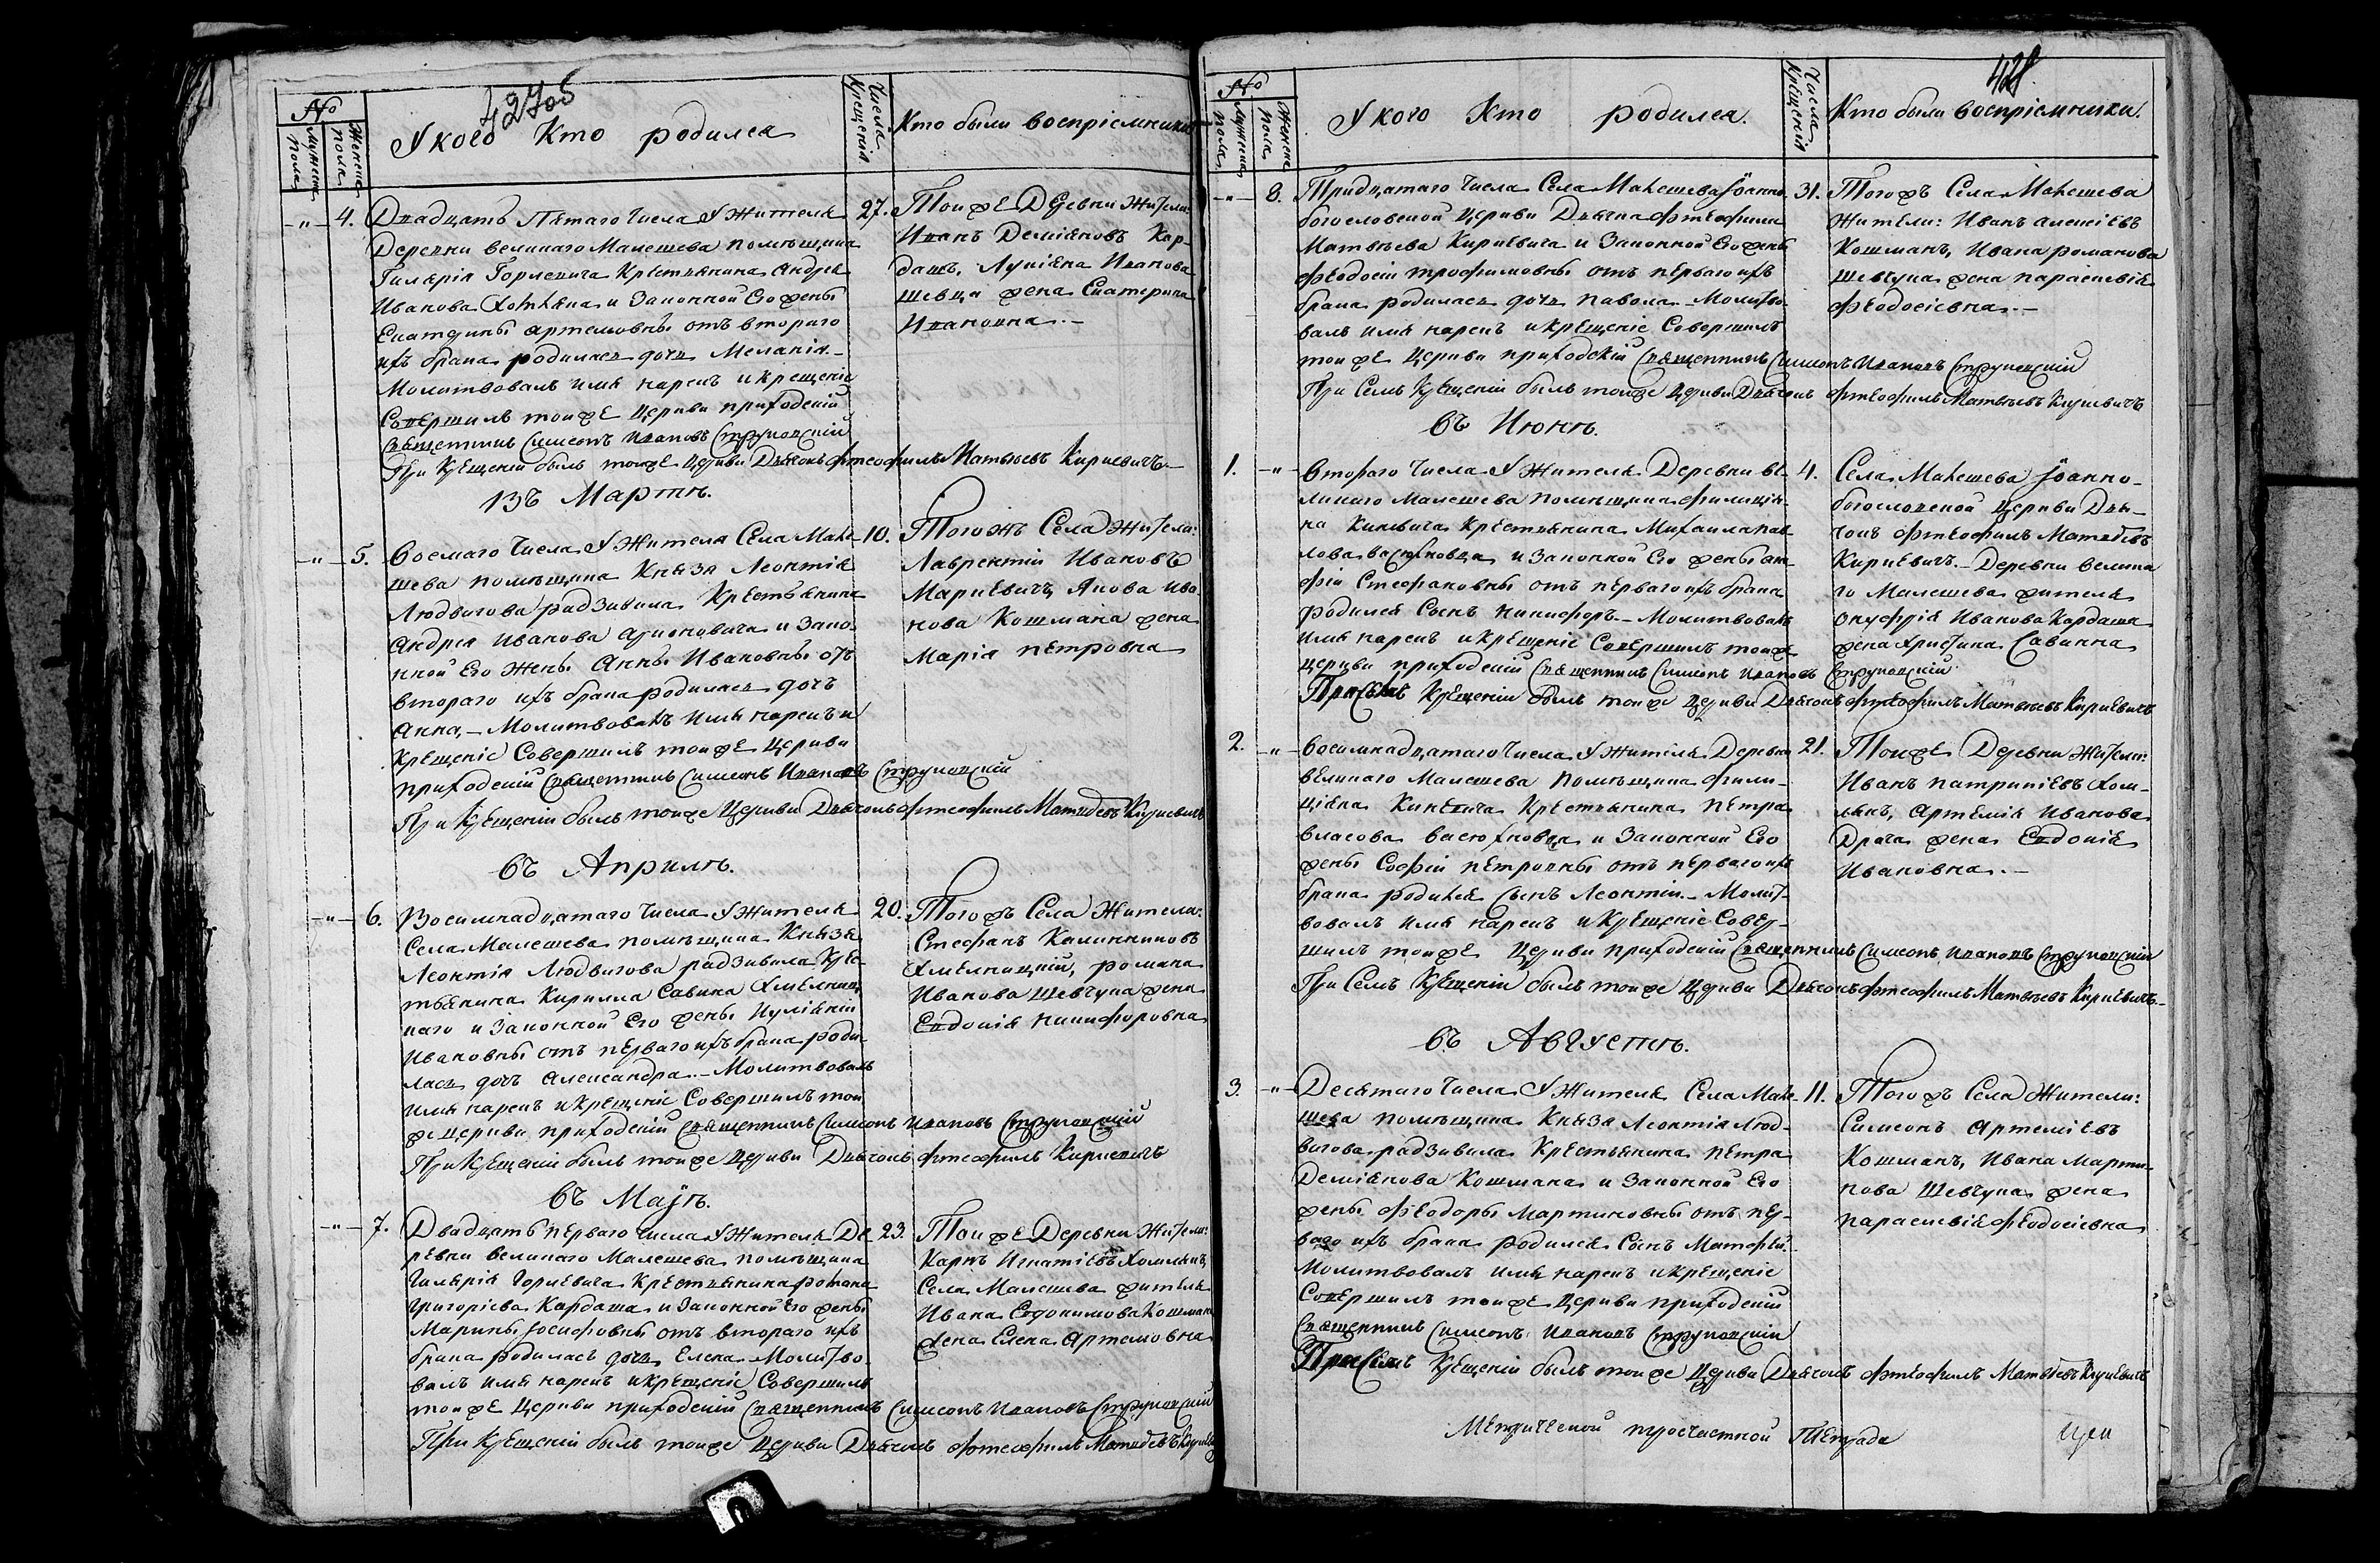 427об
№
Мужеска пола
Женска пола
У кого Кто родился
Числа Крещенія
Кто были воспріемники
-"- 4.
Двадцать Пятаго Числа У Жителя
Деревни великаго Малешева помѣщика
Гилярія Горлевича Крестьянина Андрея
Иванова Хомляка и Законной Его жены
Екатерины Артемовны отъ втораго
ихъ брака родилась дочь Меланія
Молитвовалъ имя нарекъ и крещеніе
Совершилъ тоижъ Церкви приходскій
Священникъ Симеонъ Ивановъ Струковскій
При Крещеніи былъ тоиже Церкви Дьячокъ Ѳеофилъ Матвѣевъ Киркевичъ.
27.
Тоиже Деревни Жители:
Иванъ Деміяновъ Кар-
дашъ, Лукіяна Иванова
Шевца жена Екатерина
Ивановна.-
Въ Мартѣ.
-"- 5.
Восмаго Числа У Жителя Села Мале-
шева помѣщика Князя Леонтія
Людвигова радзивила Крестьянина
Андрея Иванова и Зако-
нной Его Жены Анны Ивановны отъ
втораго ихъ брака родилась дочь
Анна,- Молитвовалъ Имя нарекъ и
Крещеніе Совершилъ тоиже Церкви
приходскій Священникъ Симеонъ Ивановъ Струковскій
При Крещеніи былъ тоиже Церкви Дьячокъ Ѳеофилъ Матвѣевъ Киркевичъ
10.
Тогожъ Села Жители:
Лаврентій Ивановъ
Маркевичъ, Якова Ива
нова Кошмана жена
Марія Петровна
Въ Априлѣ.
-"- 6.
Восимнадцатаго Числа У Жителя
Села Малешева помѣщика Князя
Леонтія Людвигова радзивила Крес-
тьянина Кирилла Савина Хмелниц
каго и Законной Его жены Иуліяніи
Ивановны отъ перваго ихъ брака роди-
лась дочь Александра.- Молитвовалъ
имя нарекъ и крещеніе Совершилъ тои
же церкви приходскій Священникъ Симеонъ Ивановъ Струковскій
При Крещеніи былъ тоиже Церкви Дьячокъ Ѳеофилъ Киркевичъ
20.
Тогожъ Села Жители:
Стефанъ Калинниковъ
Хмелницкій, романа
Иванова Шевчука жена
Евдокія Никифоровна
Въ Маіѣ.
-"- 7.
Двадцать перваго числа У Жителя Де-
ревни великаго Малешева помѣщика
Гилярія Горлевича Крестьянина романа
Григоріева Кардаша и Законной Его жены
Марины Іосифовны отъ втораго ихъ
брака родилась дочь Елена Молитво-
валъ имя нарекъ и крещеніе Совершилъ
тоиже Церкви приходскій Священникъ Симеонъ Ивановъ Струковскій
При Крещеніи былъ тоиже Церкви Дьячокъ Ѳеофилъ Матвѣевъ
23.
Тоиже Деревни Жители:
Карпъ Игнатіевъ Хомлякъ,
Села Малешева жителя
Ивана Евдокимова Кошмана
жена Елена Артемовна
428
№
Мужеска пола
Женска пола
У кого Кто родился.
Числа Крещенія
Кто были воспріемники.
-"- 8.
Тридцатаго Числа Села Малешева Іоанно-
богословской Церкви Дьячка Ѳеофила
Матвѣева Киркевича и Законной Его жены
Ѳеодосіи трофимовны отъ перваго ихъ
брака родилась дочь Молитво-
валъ имя нарекъ и крещеніе Совершилъ
тоиже Церкви приходскій Священникъ Симеонъ Ивановъ Струковскій
При Семъ Крещеніи былъ тоиже Церкви Дьячокъ Ѳеофилъ Матвѣевъ Киркевичъ
31.
Тогожъ Села Малешева
Жители: Иванъ Алексіевъ
Кошманъ, Ивана романова
Шевчука жена Параскевія
Ѳеодосіевна.-
Въ Июнѣ.
1. -"-
Втораго Числа У Жителя Деревни ве-
ликаго Малешева помѣщика Филиція-
на Киневича Крестьянина Михаила Пав-
лова Васюхновца и Законной Его жены Ага-
фіи Стефановны отъ перваго ихъ брака
родился Сынъ Никифоръ.- Молитвовалъ
имя нарекъ и крещеніе Совершилъ тоиже
церкви приходскій Священникъ Симеонъ Ивановъ Струковскій
При Семъ Крещеніи былъ тоиже Церкви Дьячокъ Ѳеофилъ Матвѣевъ Киркевичъ
4.
Села Малешева Іоанно-
богословской Церкви Дья-
чокъ Ѳеофилъ Матвѣевъ
Киркевичъ.- Деревни велика
го Малешева жителя
Онуфрія Иванова Кардаша
жена Христина Савична
2. -"-
Восимнадцатаго Числа У Жителя Деревни
великаго Малешева помѣщика Фили-
ціяна Киневича Крестьянина Петра
Власова Васюхновца и Законной Его
жены Софіи Петровны отъ перваго ихъ
брака родился Сынъ Леонтій.- Молит-
вовалъ имя нарекъ и Крещеніе Совер-
шилъ тоиже Церкви приходскій Священникъ Симеонъ Ивановъ Струковскій
При Семъ Крещеніи былъ тоиже Церкви Дьячокъ Ѳеофилъ Матвѣевъ Киркевичъ.
21.
Тоиже Деревни Жители:
Иванъ Патрикіевъ Хом-
лякъ, Артемія Иванова
Драча жена Евдокія
Ивановна.-
Въ Августѣ.
3. -"-
Десятаго Числа У Жителя Села Мале-
шева помѣщика Князя Леонтія Люд-
вигова радзивила Крестьянина Петра
Деміянова Кошмана и Законной Его
жены Ѳеодоры Мартиновны отъ пер-
ваго ихъ брака родился Сынъ Матфей.
Молитвовалъ имя нарекъ и крещеніе
Совершилъ тоиже Церкви приходскій
Священникъ Симеонъ Ивановъ Струковскій
При Семъ Крещеніи былъ тоиже Церкви Дьячокъ Ѳеофилъ Матвѣевъ Киркевичъ
11.
Тогожъ Села Жители:
Симеонъ Артеміевъ
Кошманъ, Ивана Марти-
нова Шевчука жена
Параскевія Ѳеодосіевна
Метрической троечастной Тетради